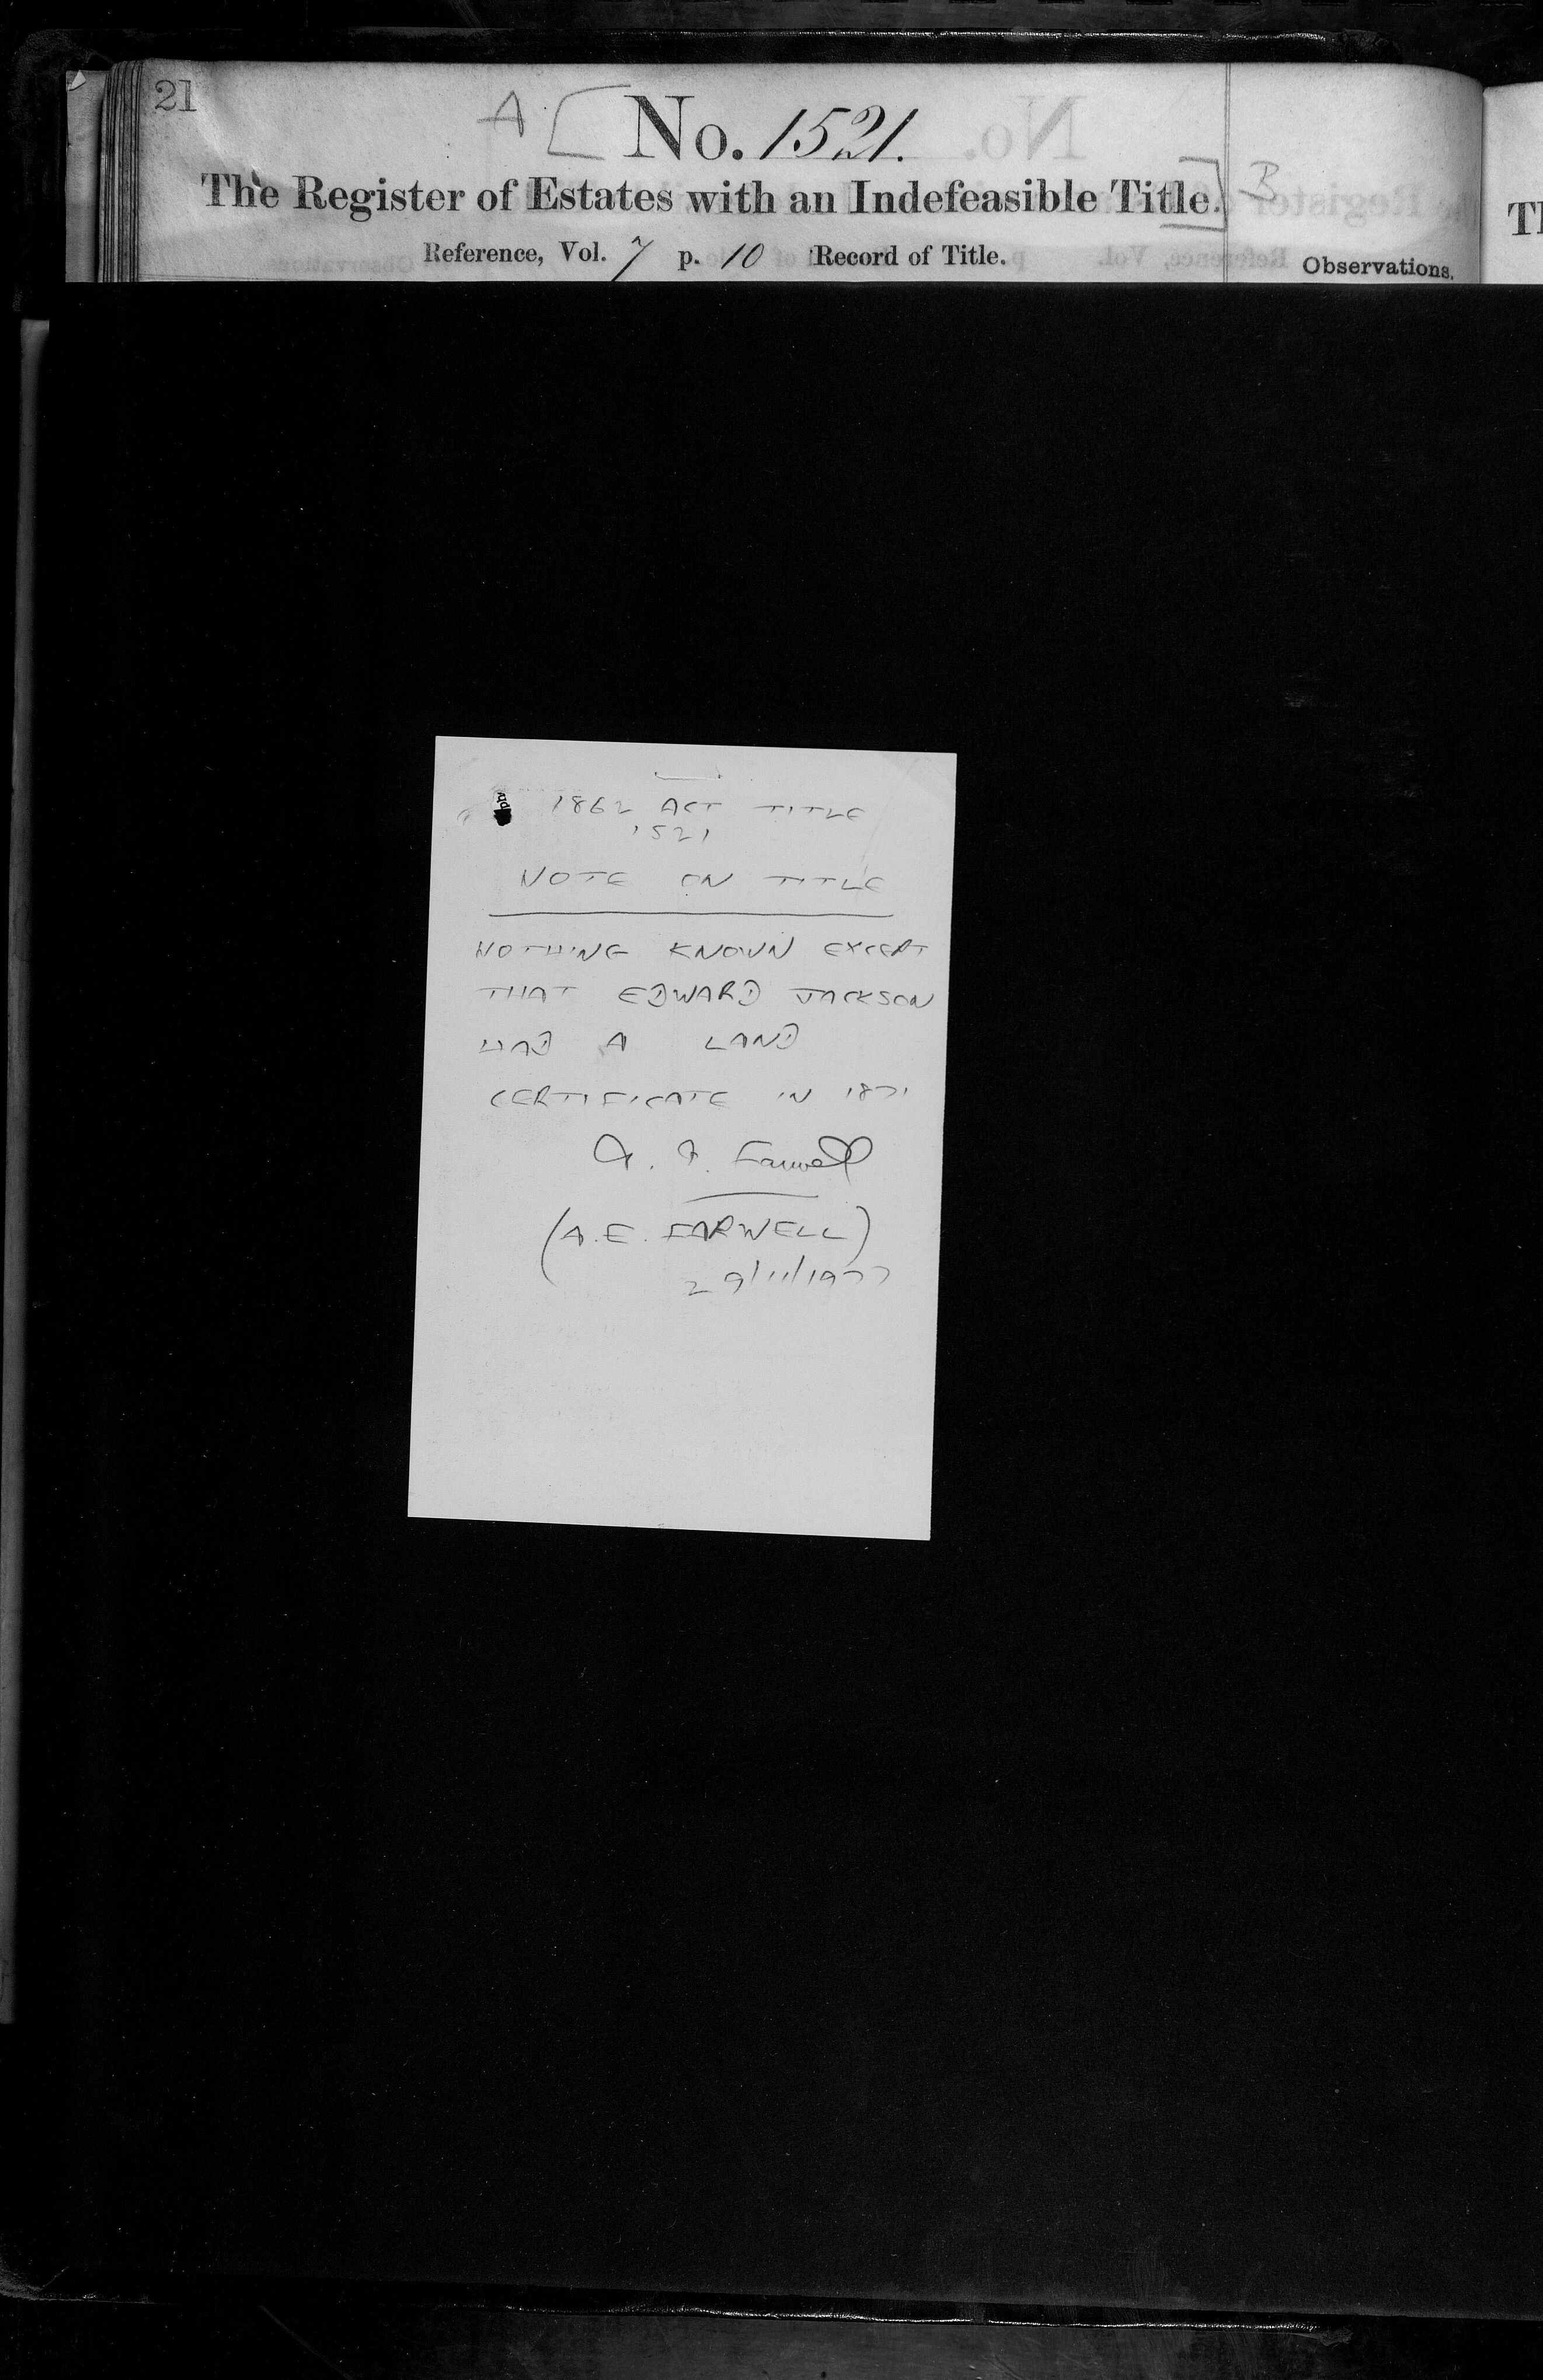 21
A [ No. 1521.
The Register of Estates with an Indefeasible Title. ] B
Reference, Vol. 7 p. 10 Record of Title.
Observations.
1862 ACT TITLE
1521
NOTE ON TITLE
NOTHING KNOWN EXCEPT
THAT EDWARD JACKSON
HAD A LAND
CERTIFICATE IN 1871
A. E. Farwell
(A.E. FARWELL)
29/11/1977